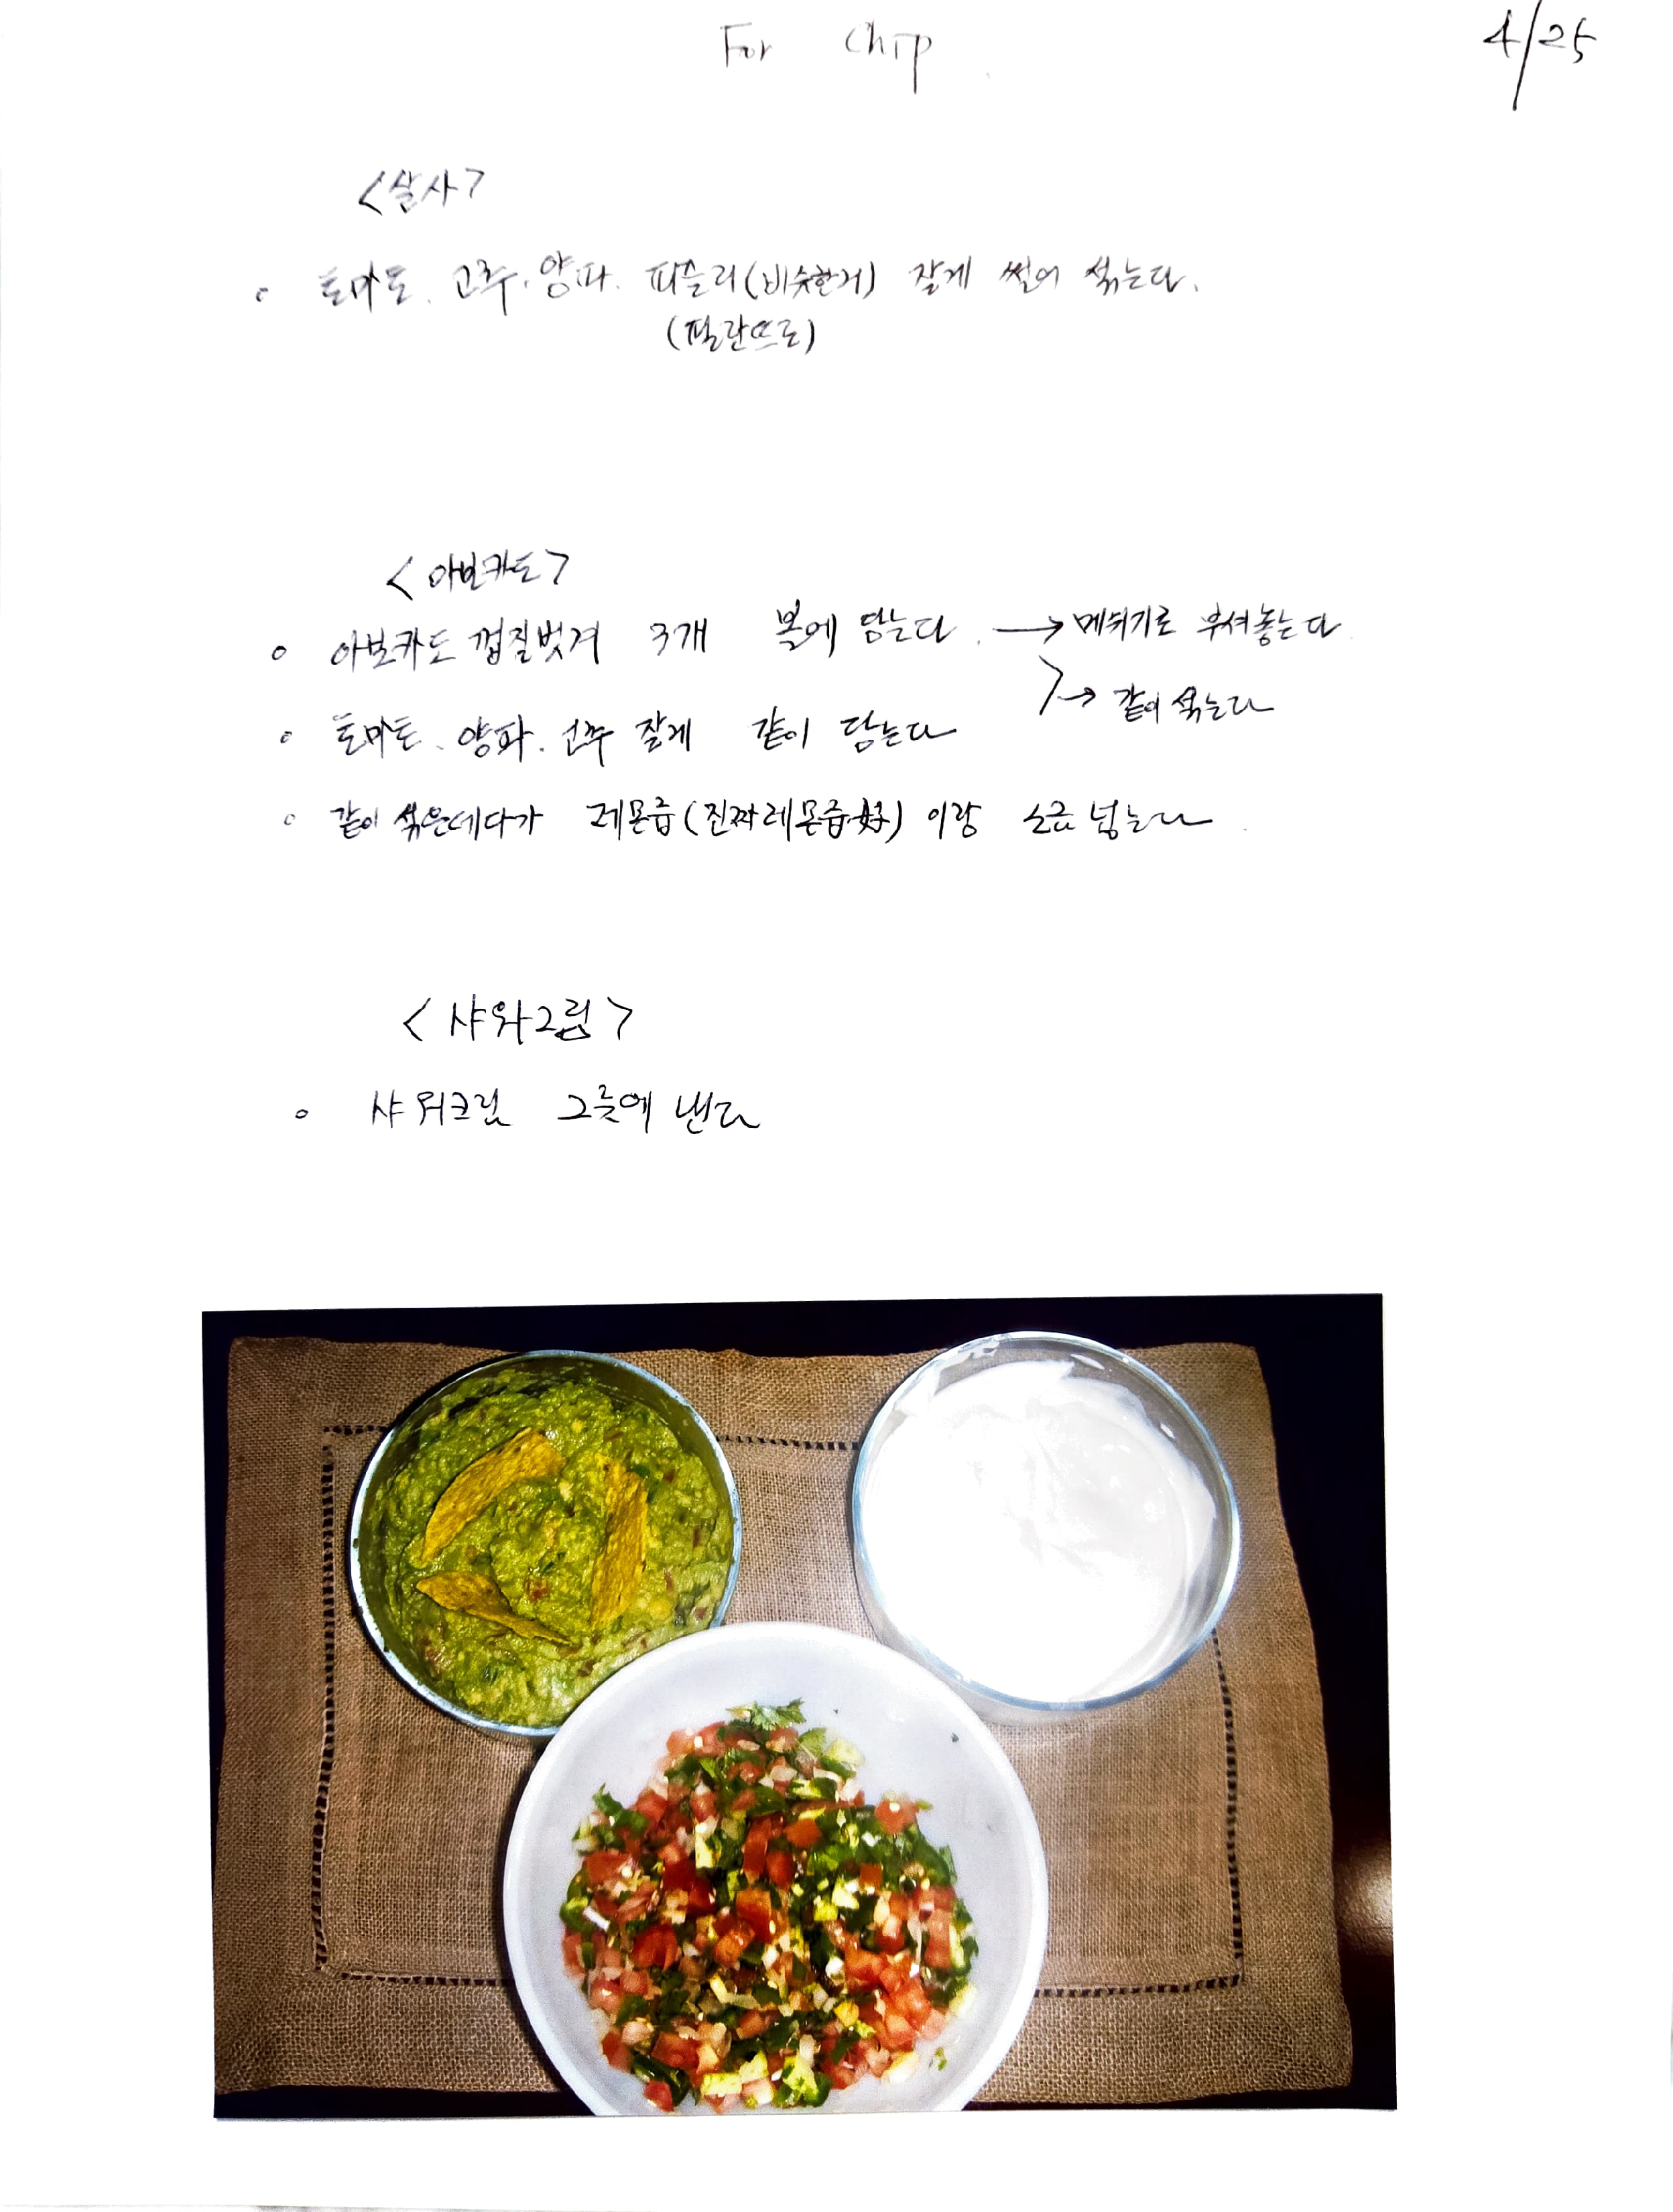 For Chip
4/25
<살사>
◦ 토마토. 고추. 양파. 파슬리(비슷한거) 잘게 썰어 섞는다.
(필란뜨로)
<아보카도>
◦ 아보카도 껍질벗겨 3개 볼에 담는다. → 메쉬기로 부셔놓는다
◦ 토마토. 양파. 고추 잘게 같이 담는다
→ 같이 섞는다
◦ 같이 섞은데다가 레몬즙(진짜레몬즙好)이랑 소금 넣는다
<샤와그림>
◦ 샤워크림 그릇에 낸다